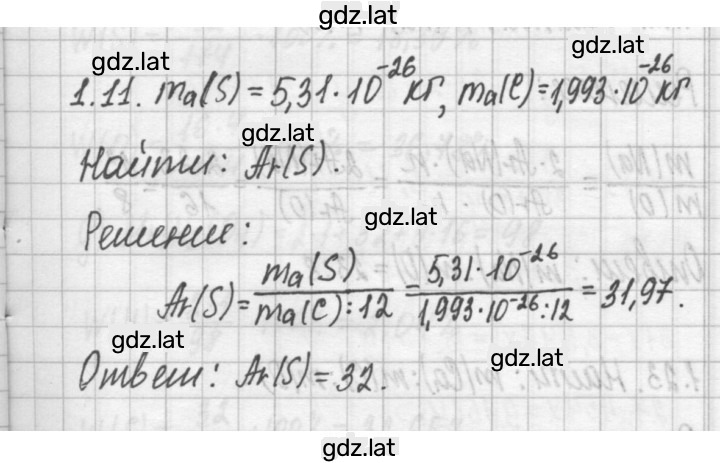 gdz.lat
gdz.lat
gdz.lat
1.11. ma(S) = 5,31·10⁻²⁶ кг, ma(C) = 1,993·10⁻²⁶ кг
gdz.lat
Найти: Ar(S).
gdz.lat
Решение:
Ar(S) = ma(S) / ma(C):12 = 5,31·10⁻²⁶ / 1,993·10⁻²⁶:12 = 31,97.
gdz.lat
gdz.lat
Ответ: Ar(S) = 32.
gdz.lat